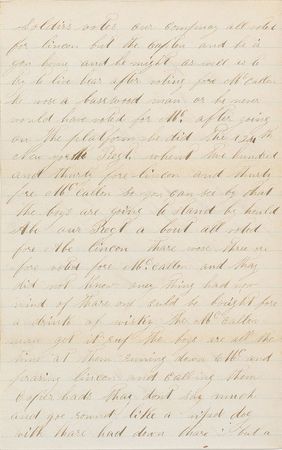 Soldiers votes our company all voted
for lincon but the capten and he is
gon home and he might as well is to
be to live hear after voting fore McCallen
he wose a basswood man or he never
would have voted for Mc after going
on the platform he did The 134th
new york Regt whent five hundred
and thurty fore lincon and thurty
fore McCallen so you can see by that
the boys are going to stand by
our Regt a bout all voted
fore Abe lincon thare wose
fore voted fore McCallen and thay
did not know any thing had now
mind of thare own could be bought fore
a drink of wiskey the McCallen
men got it the boys are all the
time at them running down Mc and
prasing lincon and calling them
Coperheads thay dont say much
and goe round like a wiped dog
with thare had down thare but a